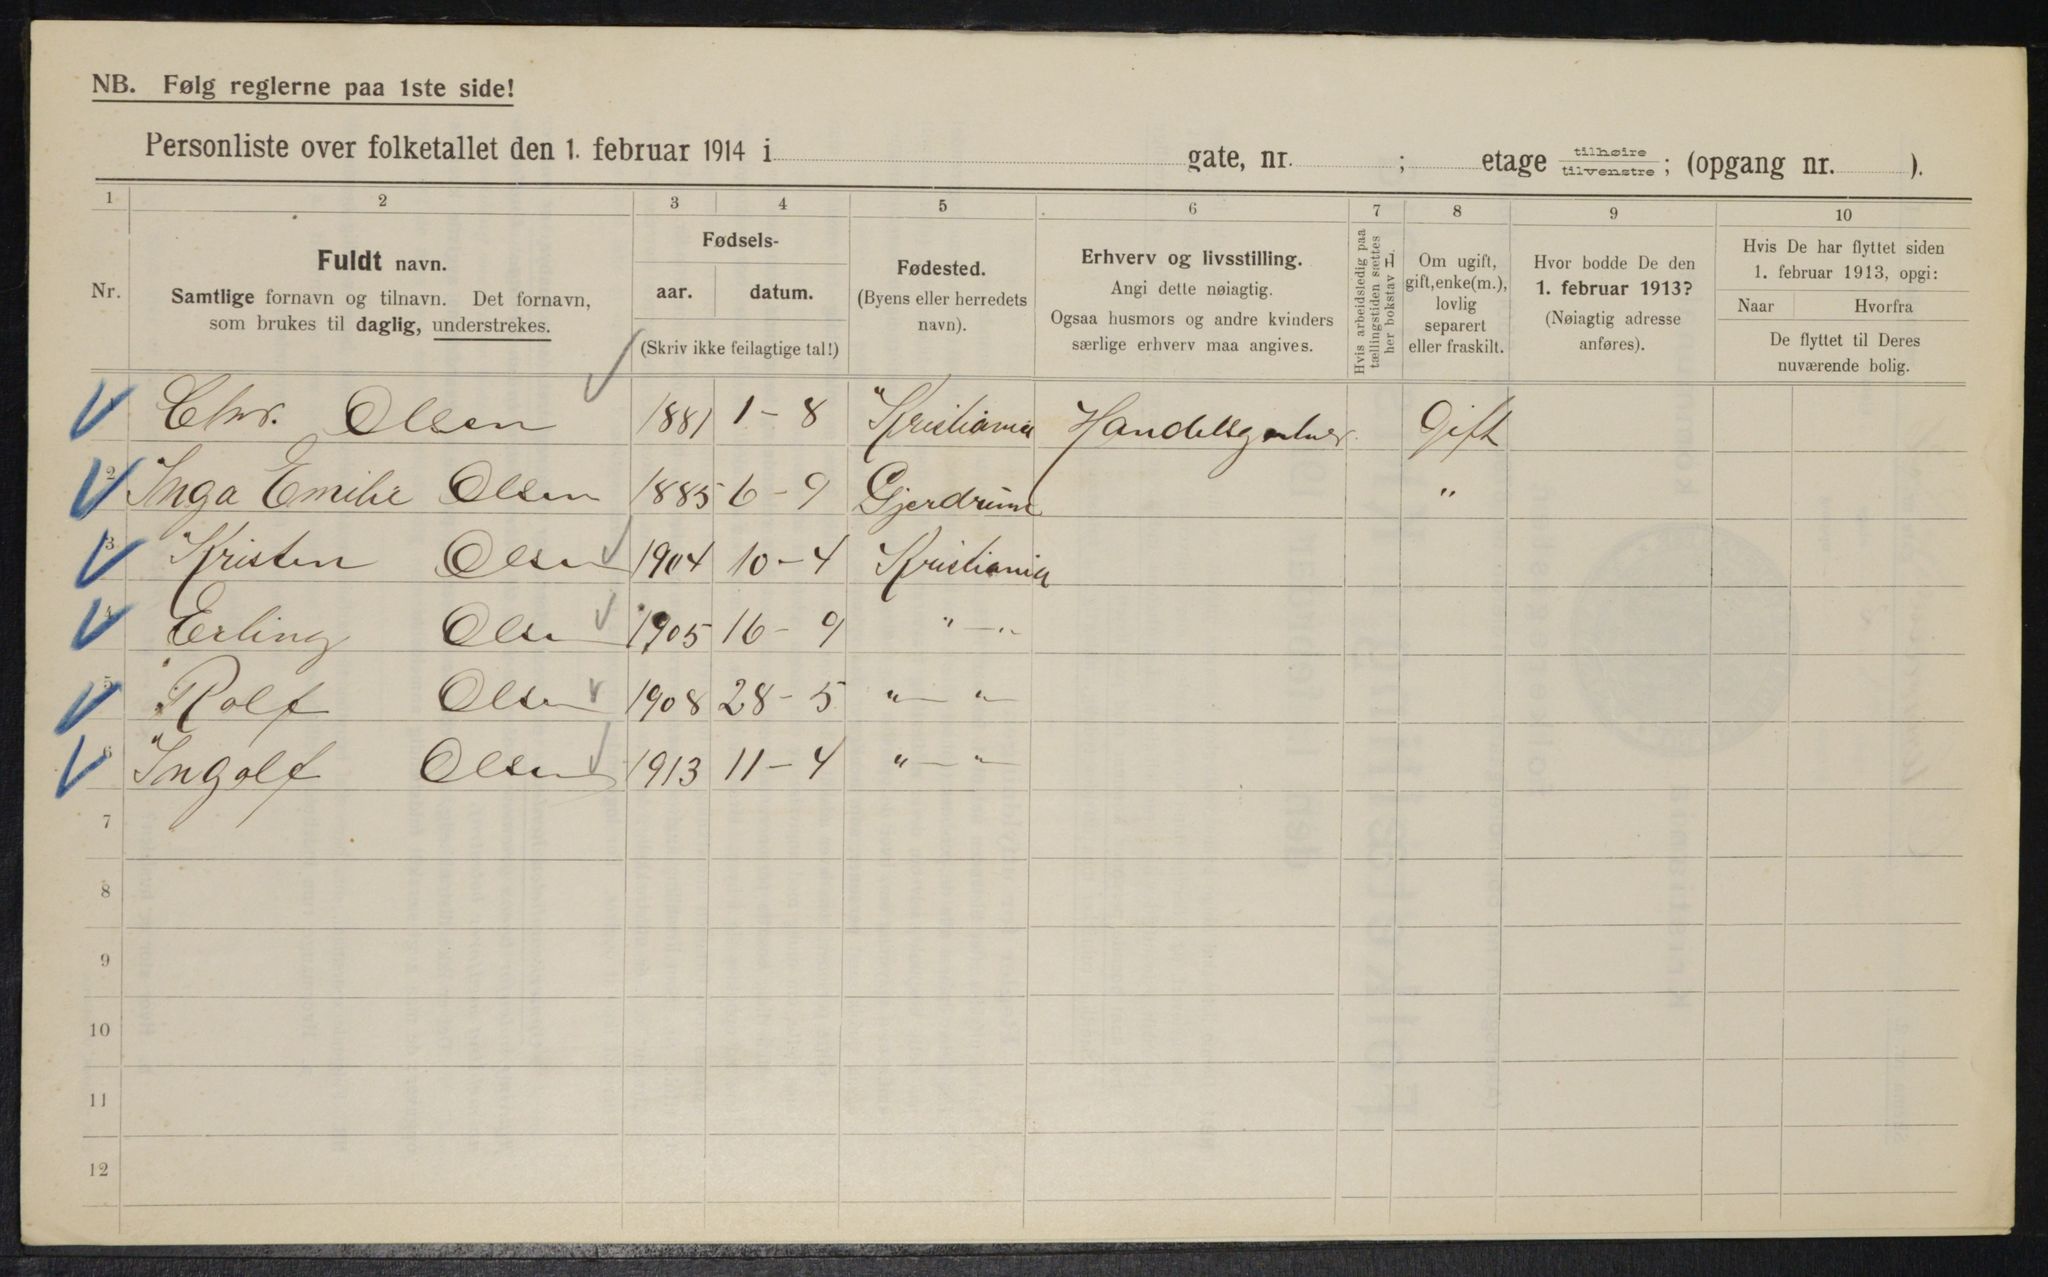 NB. Følg reglerne paa 1ste side!
Personliste over folketallet den 1. februar 1914 i gate, nr. ; etage tilhøire/tilvenstre; (opgang nr. ).
1 2 3 4 5 6 7 8 9 10
Nr.
Fuldt navn.
Samtlige fornavn og tilnavn. Det fornavn,
som brukes til daglig, understrekes.
Fødsels-
aar. datum.
(Skriv ikke feilagtige tal!)
Fødested.
(Byens eller herredets
navn).
Erhverv og livsstilling.
Angi dette nøiagtig.
Ogsaa husmors og andre kvinders
særlige erhverv maa angives.
Hvis arbeidsledig paa
tællingstiden sættes
her bokstav L.
Om ugift,
gift, enke(m.),
lovlig
separert
eller fraskilt.
Hvor bodde De den
1. februar 1913?
(Nøiagtig adresse
anføres).
Hvis De har flyttet siden
1. februar 1913, opgi:
Naar Hvorfra
De flyttet til Deres
nuværende bolig.
Chr. Olsen 1881 1-8 Kristiania Handelsgartner Gift
2 Inga Emilie Olsen 1885 6-9 Gjerdrum "
3 Kristen Olsen 1904 10-4 Kristiania
4 Erling Olsen 1905 16-9 "-"
5 Rolf Olsen 1908 28-5 "-"
6 Ingolf Olsen 1913 11-4 "-"
7
8
9
10
11
12